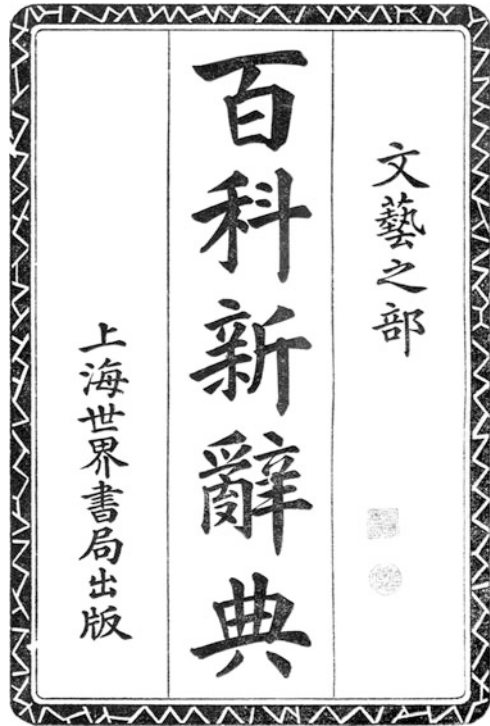 文藝之部
百科新辭典
上海世界書局出版